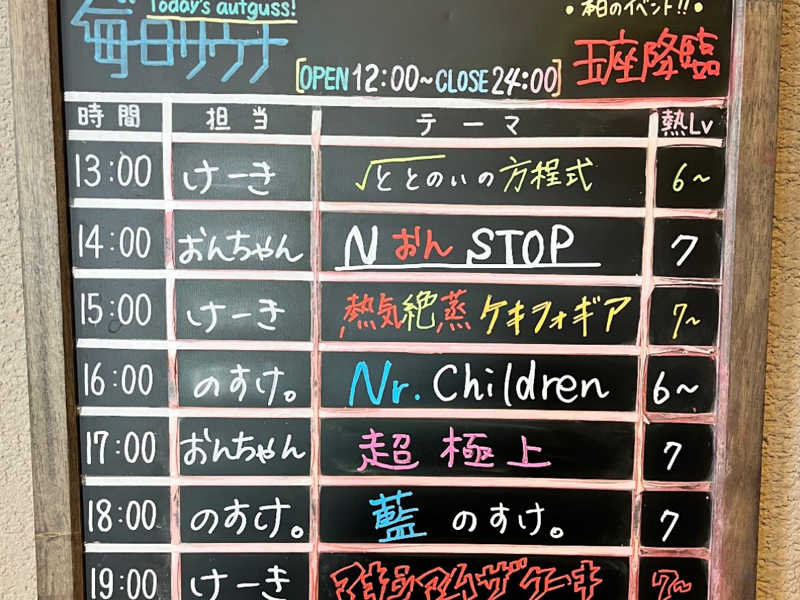 Today's aufguss!
毎日サウナ
•本日のイベント!!•
[OPEN 12:00~CLOSE 24:00]
玉座降臨
時間 担当 テーマ 熱Lv
13:00 けーき √ととのいの方程式 6~
14:00 おんちゃん Nおん STOP 7
15:00 けーき 熱気絶蒸ケキフォギア 7~
16:00 のすけ。 Nr.Children 6~
17:00 おんちゃん 超極上 7
18:00 のすけ。 藍のすけ。 7
19:00 けーき マキシマムザケーキ 7~